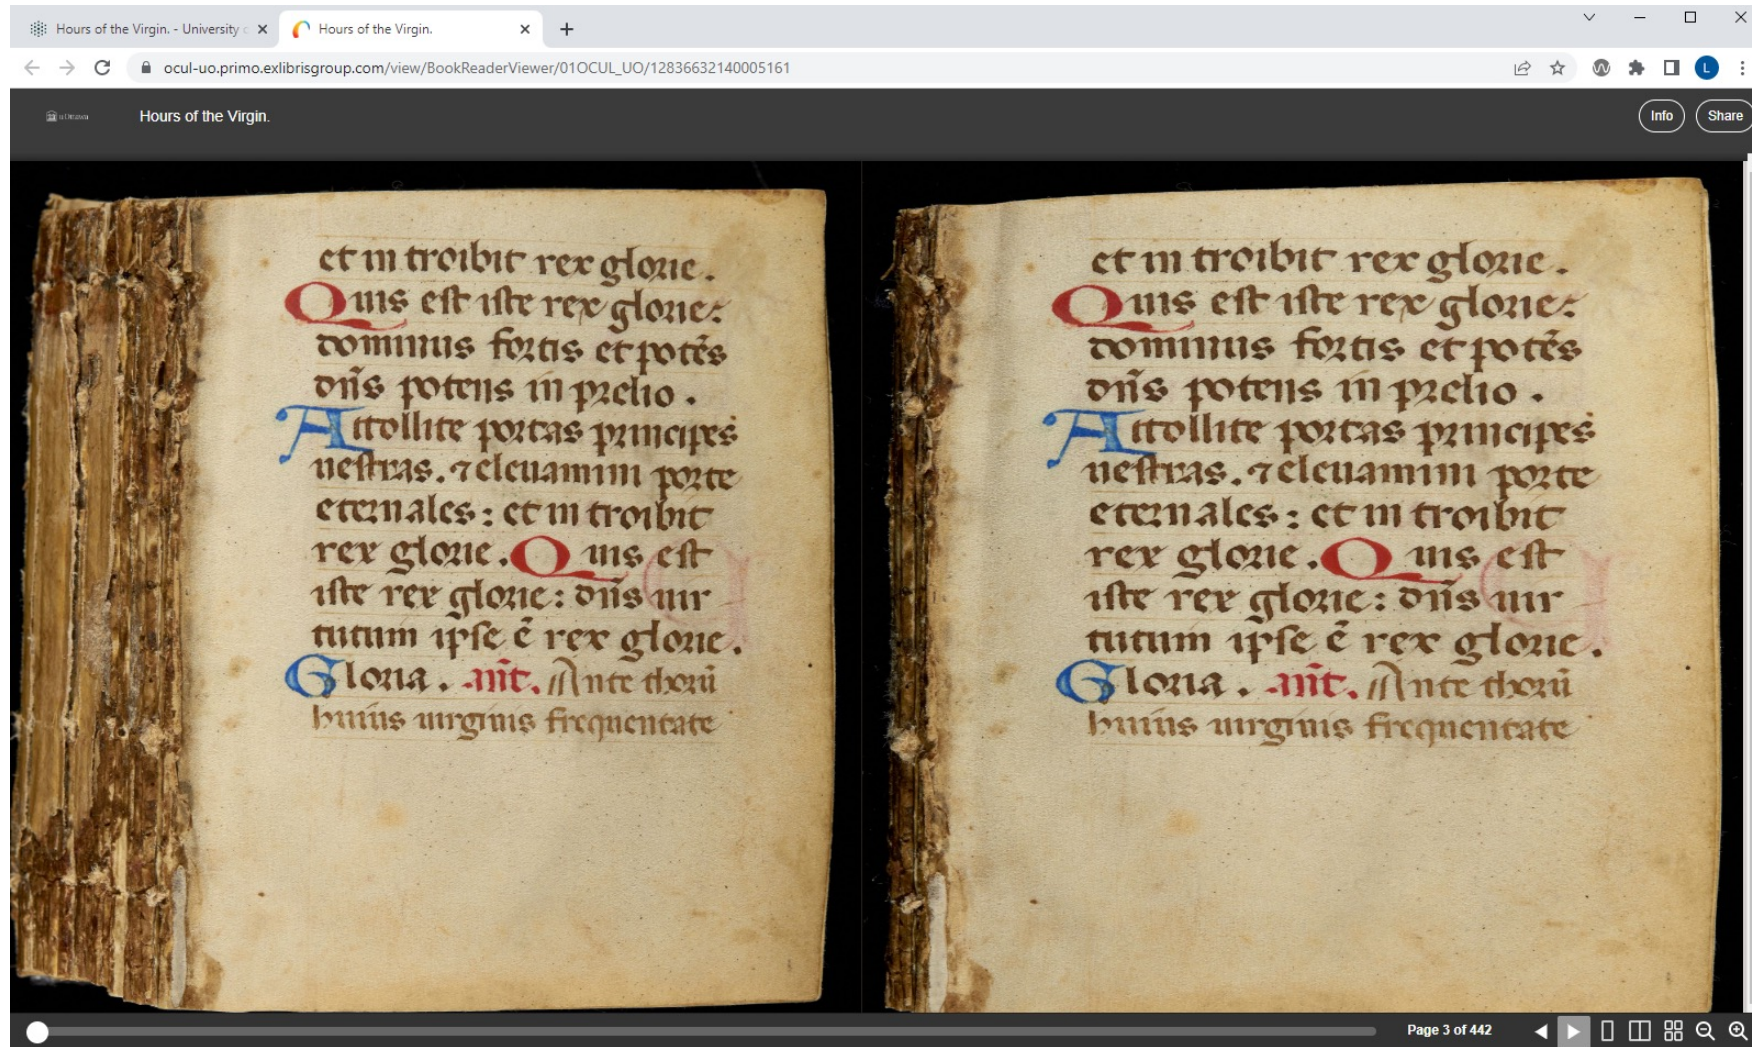 Hours of the Virgin. - University
Hours of the Virgin.
ocul-uo.primo.exlibrisgroup.com/view/BookReaderViewer/01OCUL_UO/12836632140005161
L
uOttawa
Hours of the Virgin.
Info
Share
et in troibit rex glorie.
Quis est iste rex glorie:
dominus fortis et potẽs
dñs potens in prelio.
Attollite portas principes
uestras. ⁊ eleuamini porte
eternales: et in troibit
rex glorie. Quis est
iste rex glorie: dñs uir
tutum ipse ẽ rex glorie.
Gloria. añt. Ante thorũ
huius uirginis frequentate
et in troibit rex glorie.
Quis est iste rex glorie:
dominus fortis et potẽs
dñs potens in prelio.
Attollite portas principes
uestras. ⁊ eleuamini porte
eternales: et in troibit
rex glorie. Quis est
iste rex glorie: dñs uir
tutum ipse ẽ rex glorie.
Gloria. añt. Ante thorũ
huius uirginis frequentate
Page 3 of 442